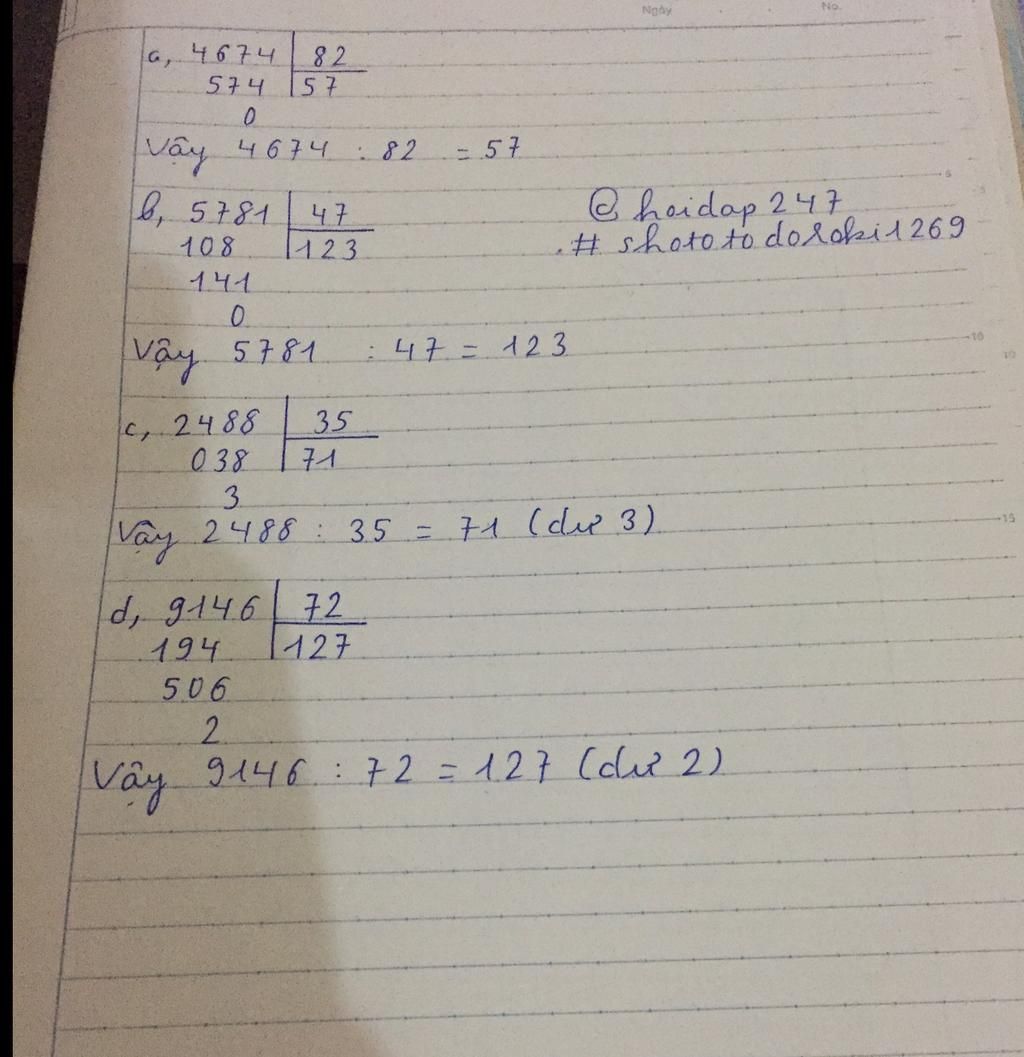 Ngày
No.
a, 4674 82
574 57
0
Vậy 4674 : 82 = 57
b, 5781 47
108 123
141
0
@ hoidap 247
# shototodoroki1269
Vậy 5781 : 47 = 123
c, 2488 35
038 71
3
Vậy 2488 : 35 = 71 (dư 3)
d, 9146 72
194 127
506
2
Vậy 9146 : 72 = 127 (dư 2)
5
10
10
15